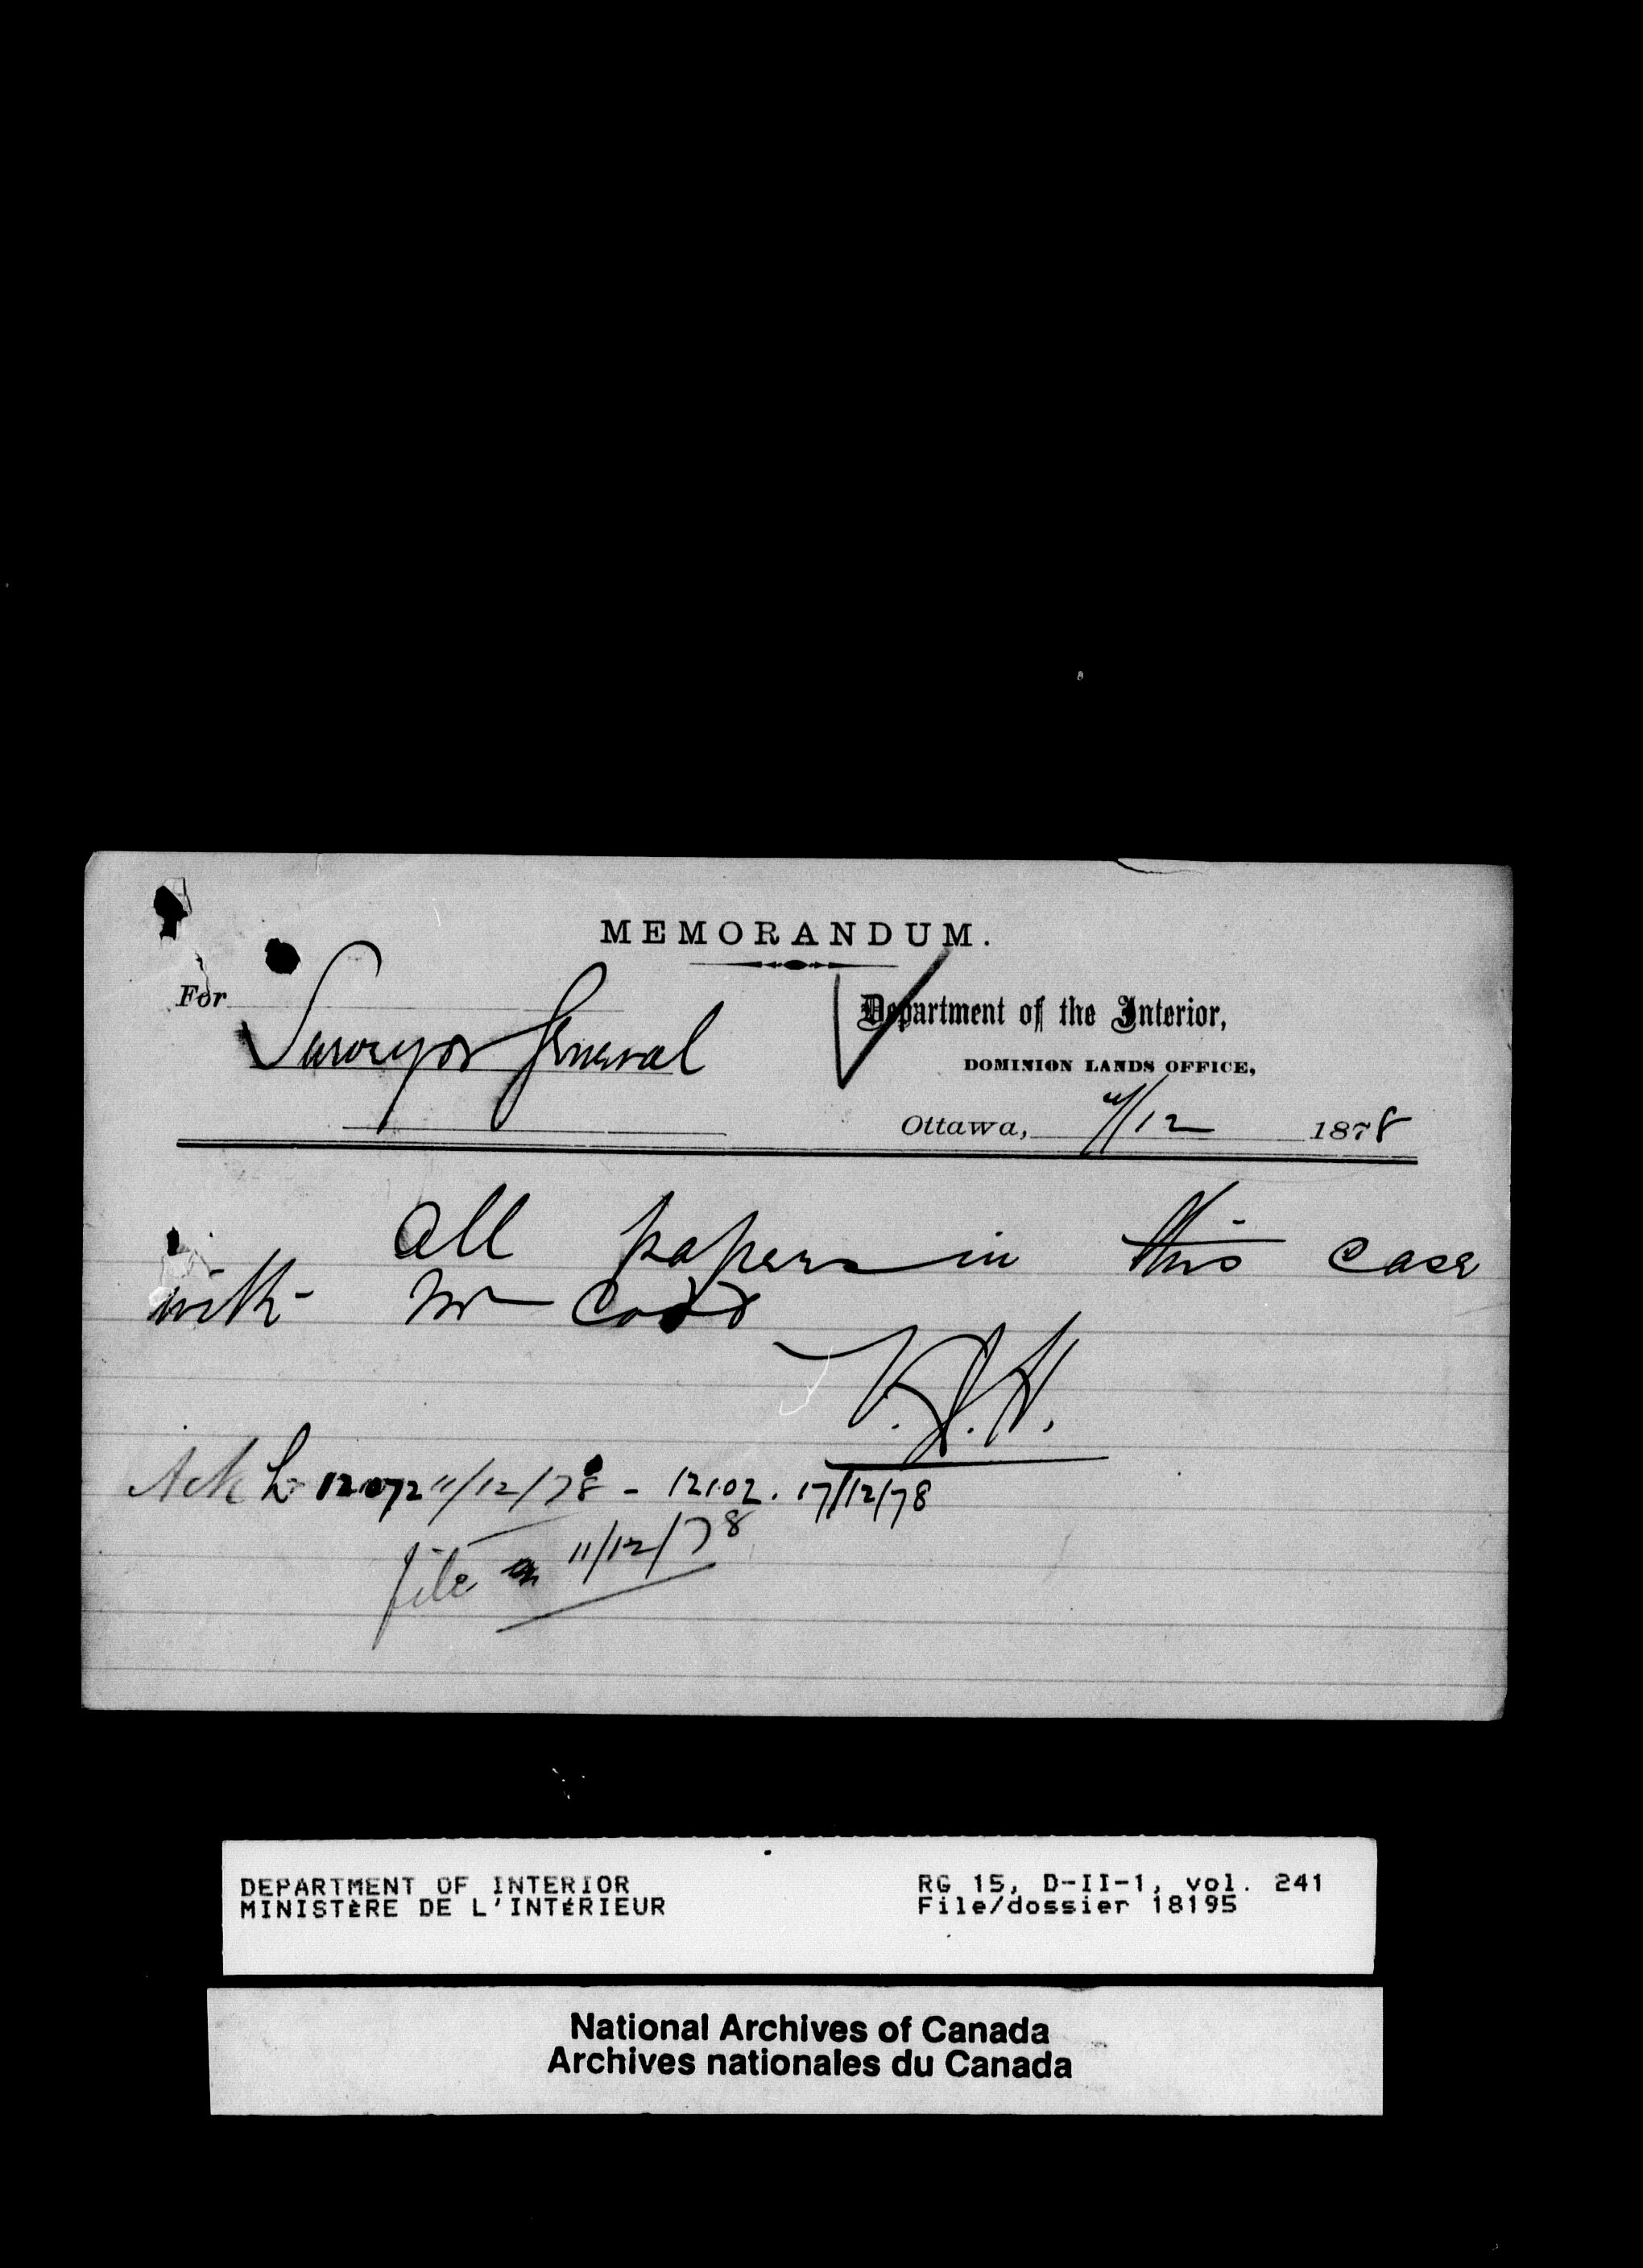 MEMORANDUM.
For
Surveyor General
Department of the Interior,
DOMINION LANDS OFFICE,
Ottawa, 4/12 1878
All papers in this case
with Mr Codd
Ack L 12072 11/12/78 - 12102. 17/12/78
file 11/12/78
DEPARTMENT OF INTERIOR
MINISTÈRE DE L'INTÉRIEUR
RG 15, D-II-1, vol. 241
File/dossier 18195
National Archives of Canada
Archives nationales du Canada